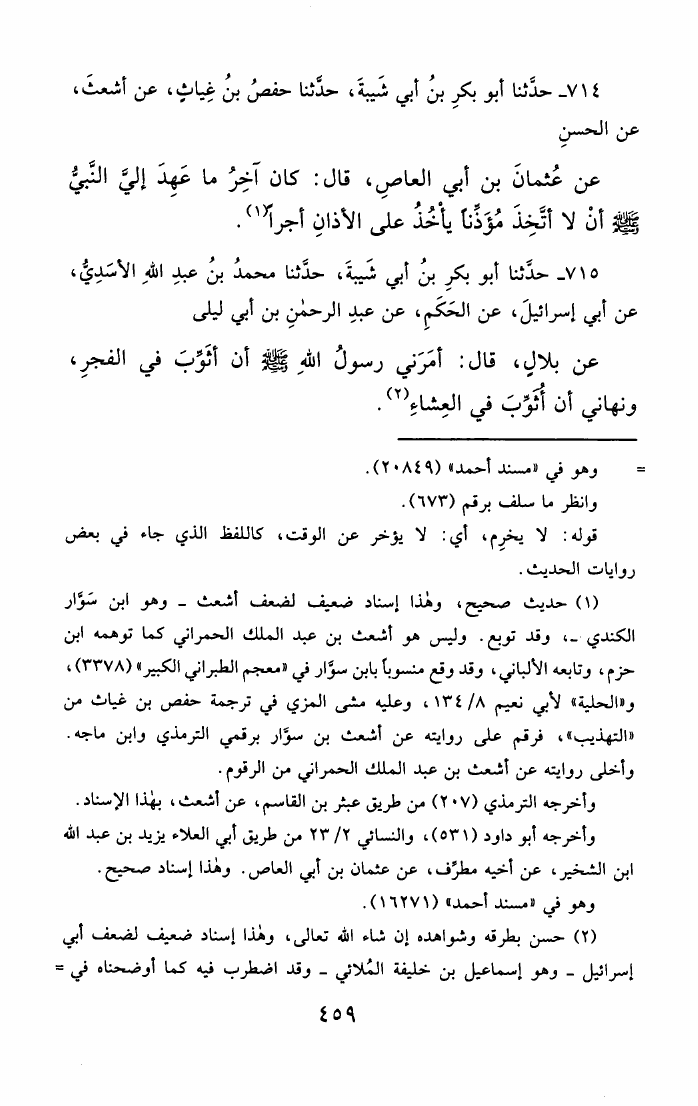 ٧١٤ـ حدَّثنا أبو بكرِ بنُ أبي شَيبةَ، حدَّثنا حفصُ بنُ غِياثٍ، عن أشعثَ،
عن الحسنِ
عن عُثمانَ بن أبي العاصِ، قال: كان آخِرُ ما عَهِدَ إليَّ النَّبيُّ
ﷺ أنْ لا أتَّخِذَ مُؤَذِّناً يأْخُذُ على الأذانِ أجراً(١).
٧١٥ـ حدَّثنا أبو بكرِ بنُ أبي شَيبةَ، حدَّثنا محمدُ بنُ عبدِ اللهِ الأسَدِيُّ،
عن أبي إسرائيلَ، عن الحَكَمِ، عن عبدِ الرحمٰنِ بن أبي ليلى
عن بلالٍ، قال: أمَرَني رسولُ اللهِ ﷺ أن أثَوِّبَ في الفجرِ،
ونهاني أن أُثَوِّبَ في العِشاءِ(٢).
= وهو في «مسند أحمد» (٢٠٨٤٩).
وانظر ما سلف برقم (٦٧٣).
قوله: لا يخرِم، أي: لا يؤخر عن الوقت، كاللفظ الذي جاء في بعض
روايات الحديث.
(١) حديث صحيح، وهٰذا إسناد ضعيف لضعف أشعث ـ وهو ابن سَوَّار
الكندي ـ، وقد توبع. وليس هو أشعث بن عبد الملك الحمراني كما توهمه ابن
حزم، وتابعه الألباني، وقد وقع منسوباً بابن سوَّار في «معجم الطبراني الكبير» (٣٣٧٨)،
و«الحلية» لأبي نعيم ٨/ ١٣٤، وعليه مشى المزي في ترجمة حفص بن غياث من
«التهذيب»، فرقم على روايته عن أشعث بن سوَّار برقمي الترمذي وابن ماجه.
وأخلى روايته عن أشعث بن عبد الملك الحمراني من الرقوم.
وأخرجه الترمذي (٢٠٧) من طريق عبثر بن القاسم، عن أشعث، بهٰذا الإسناد.
وأخرجه أبو داود (٥٣١)، والنسائي ٢/ ٢٣ من طريق أبي العلاء يزيد بن عبد الله
ابن الشخير، عن أخيه مطرِّف، عن عثمان بن أبي العاص. وهٰذا إسناد صحيح.
وهو في «مسند أحمد» (١٦٢٧١).
(٢) حسن بطرقه وشواهده إن شاء الله تعالى، وهٰذا إسناد ضعيف لضعف أبي
إسرائيل ـ وهو إسماعيل بن خليفة المُلائي ـ وقد اضطرب فيه كما أوضحناه في =
٤٥٩